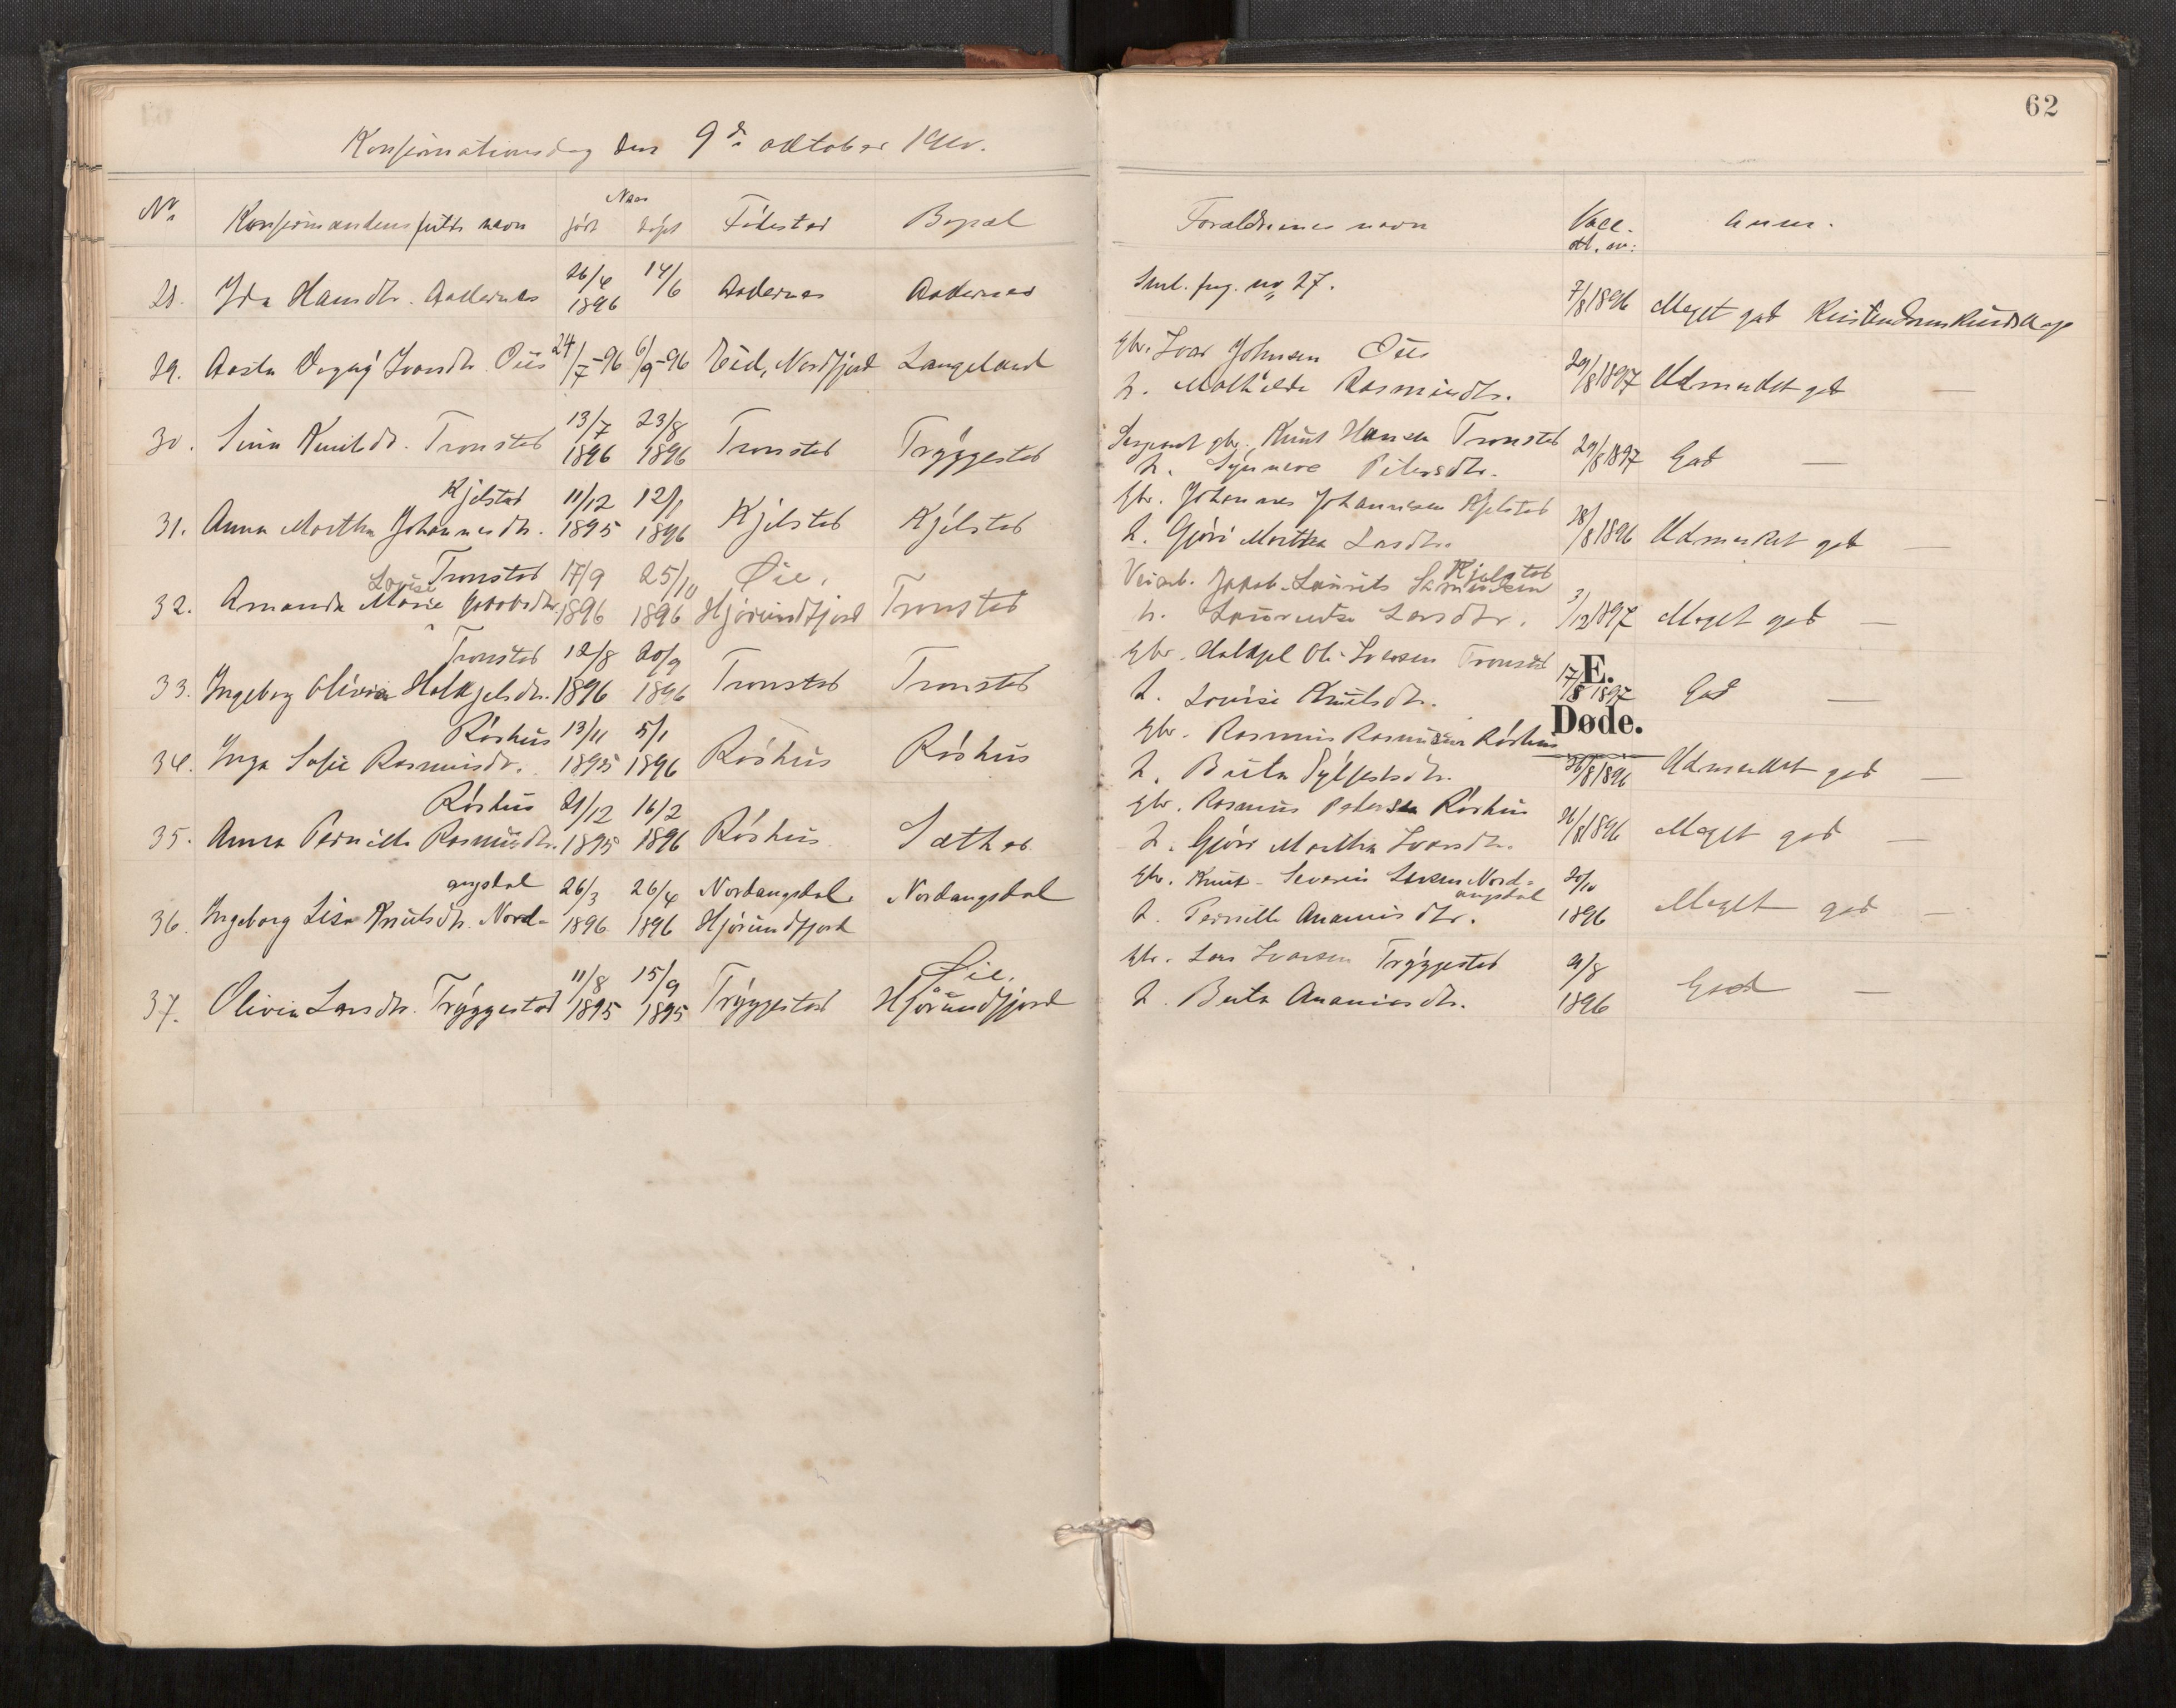 62
Konfirmationsdag den 9de oktober 1910.
No Konfirmandens fulde navn Naar født døpt Fødested Bopæl Forældrenes navn Vacc. att. av: Anm.
28. Ida Hansdtr. Aadernæs 26/4 1896 14/6 Aadernæs Aadernæs Sml. fng. no 27. 7/8 1896 Meget god Kristendomskundskap
29. Aasta Dagny Ivarsdtr. Øie 24/7-96 6/9-96 Eid, Nordfjord Langeland Gbr. Ivar Johnsen Øie 29/8 1897 Udmerket god —
h. Mathilde Rasmusdtr.
30. Sina Knutsdtr. Tronstad 13/7 1896 23/8 1896 Tronstad Tryggestad Sergeant gbr. Knut Hansen Tronstad 29/8 1897 God —
h. Synnøve Petersdtr.
31. Anna Martha Johannesdtr. Kjelstad 11/12 1895 12/1 1896 Kjelstad Kjelstad Gbr. Johannes Johannesen Kjelstad 18/8 1896 Udmerket god —
h. Gjøri Martha Larsdtr.
32. Amanda Lovise Marie Jakobsdtr. Tronstad 17/9 1896 25/10 1896 Øie, Hjørundfjord Tronstad Veiarb. Jakob Laurits Kjelstad 3/12 1897 Meget god —
h. Laurentse Larsdtr.
33. Ingeborg Olivia Halkjelsdtr. Tronstad 12/8 1896 20/9 1896 Tronstad Tronstad Gbr. Halkjel Ole Iversen Tronstad 17/8 1897 God —
h. Lovise Knutsdtr.
E.
Døde.
34. Inga Sofie Rasmusdtr. Røshus 13/11 1895 5/1 1896 Røshus Røshus Gbr. Rasmus Rasmussen Røshus 26/8 1896 Udmerket god —
h. Brita Sylfestsdtr.
35. Anna Pernille Rasmusdtr. Røshus 21/12 1895 16/2 1896 Røshus Sæther Gbr. Rasmus Petersen Røshus 26/8 1896 Meget god —
h. Gjøri Martha Ivarsdtr.
36. Ingeborg Lisa Knutsdtr. Nordangsdal 26/3 1896 26/4 1896 Nordangsdal Hjørundfjord Nordangsdal Gbr. Knut Severin Larsen Nordangsdal 20/10 1896 Meget god —
h. Pernille Ananiasdtr.
37. Olivia Larsdtr. Tryggestad 11/8 1895 15/9 1895 Tryggestad Øie, Hjørundfjord Gbr. Lars Ivarsen Tryggestad 9/8 1896 God —
h. Berta Ananiasdtr.